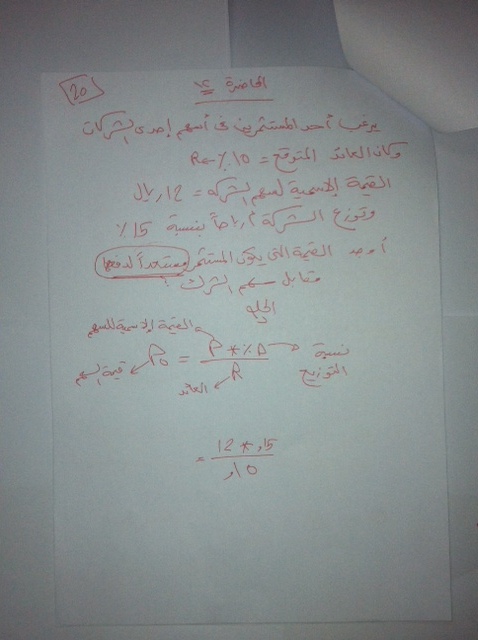 20
المحاضرة ١٤
يرغب أحد المستثمرين في أسهم إحدى الشركات
وكان العائد المتوقع = ١٥٪ Re
القيمة الإسمية لسهم الشركة = 12 ريال
وتوزع الشركة أرباحاً بنسبة 15٪
أوجد القيمة التي يكون المستثمر مستعداً لدفعها
مقابل سهم الشركة
الحل
القيمة الإسمية للسهم
نسبة التوزيع
P * % D
= P0
قيمة السهم
R
العائد
12 * ,15
=
,10